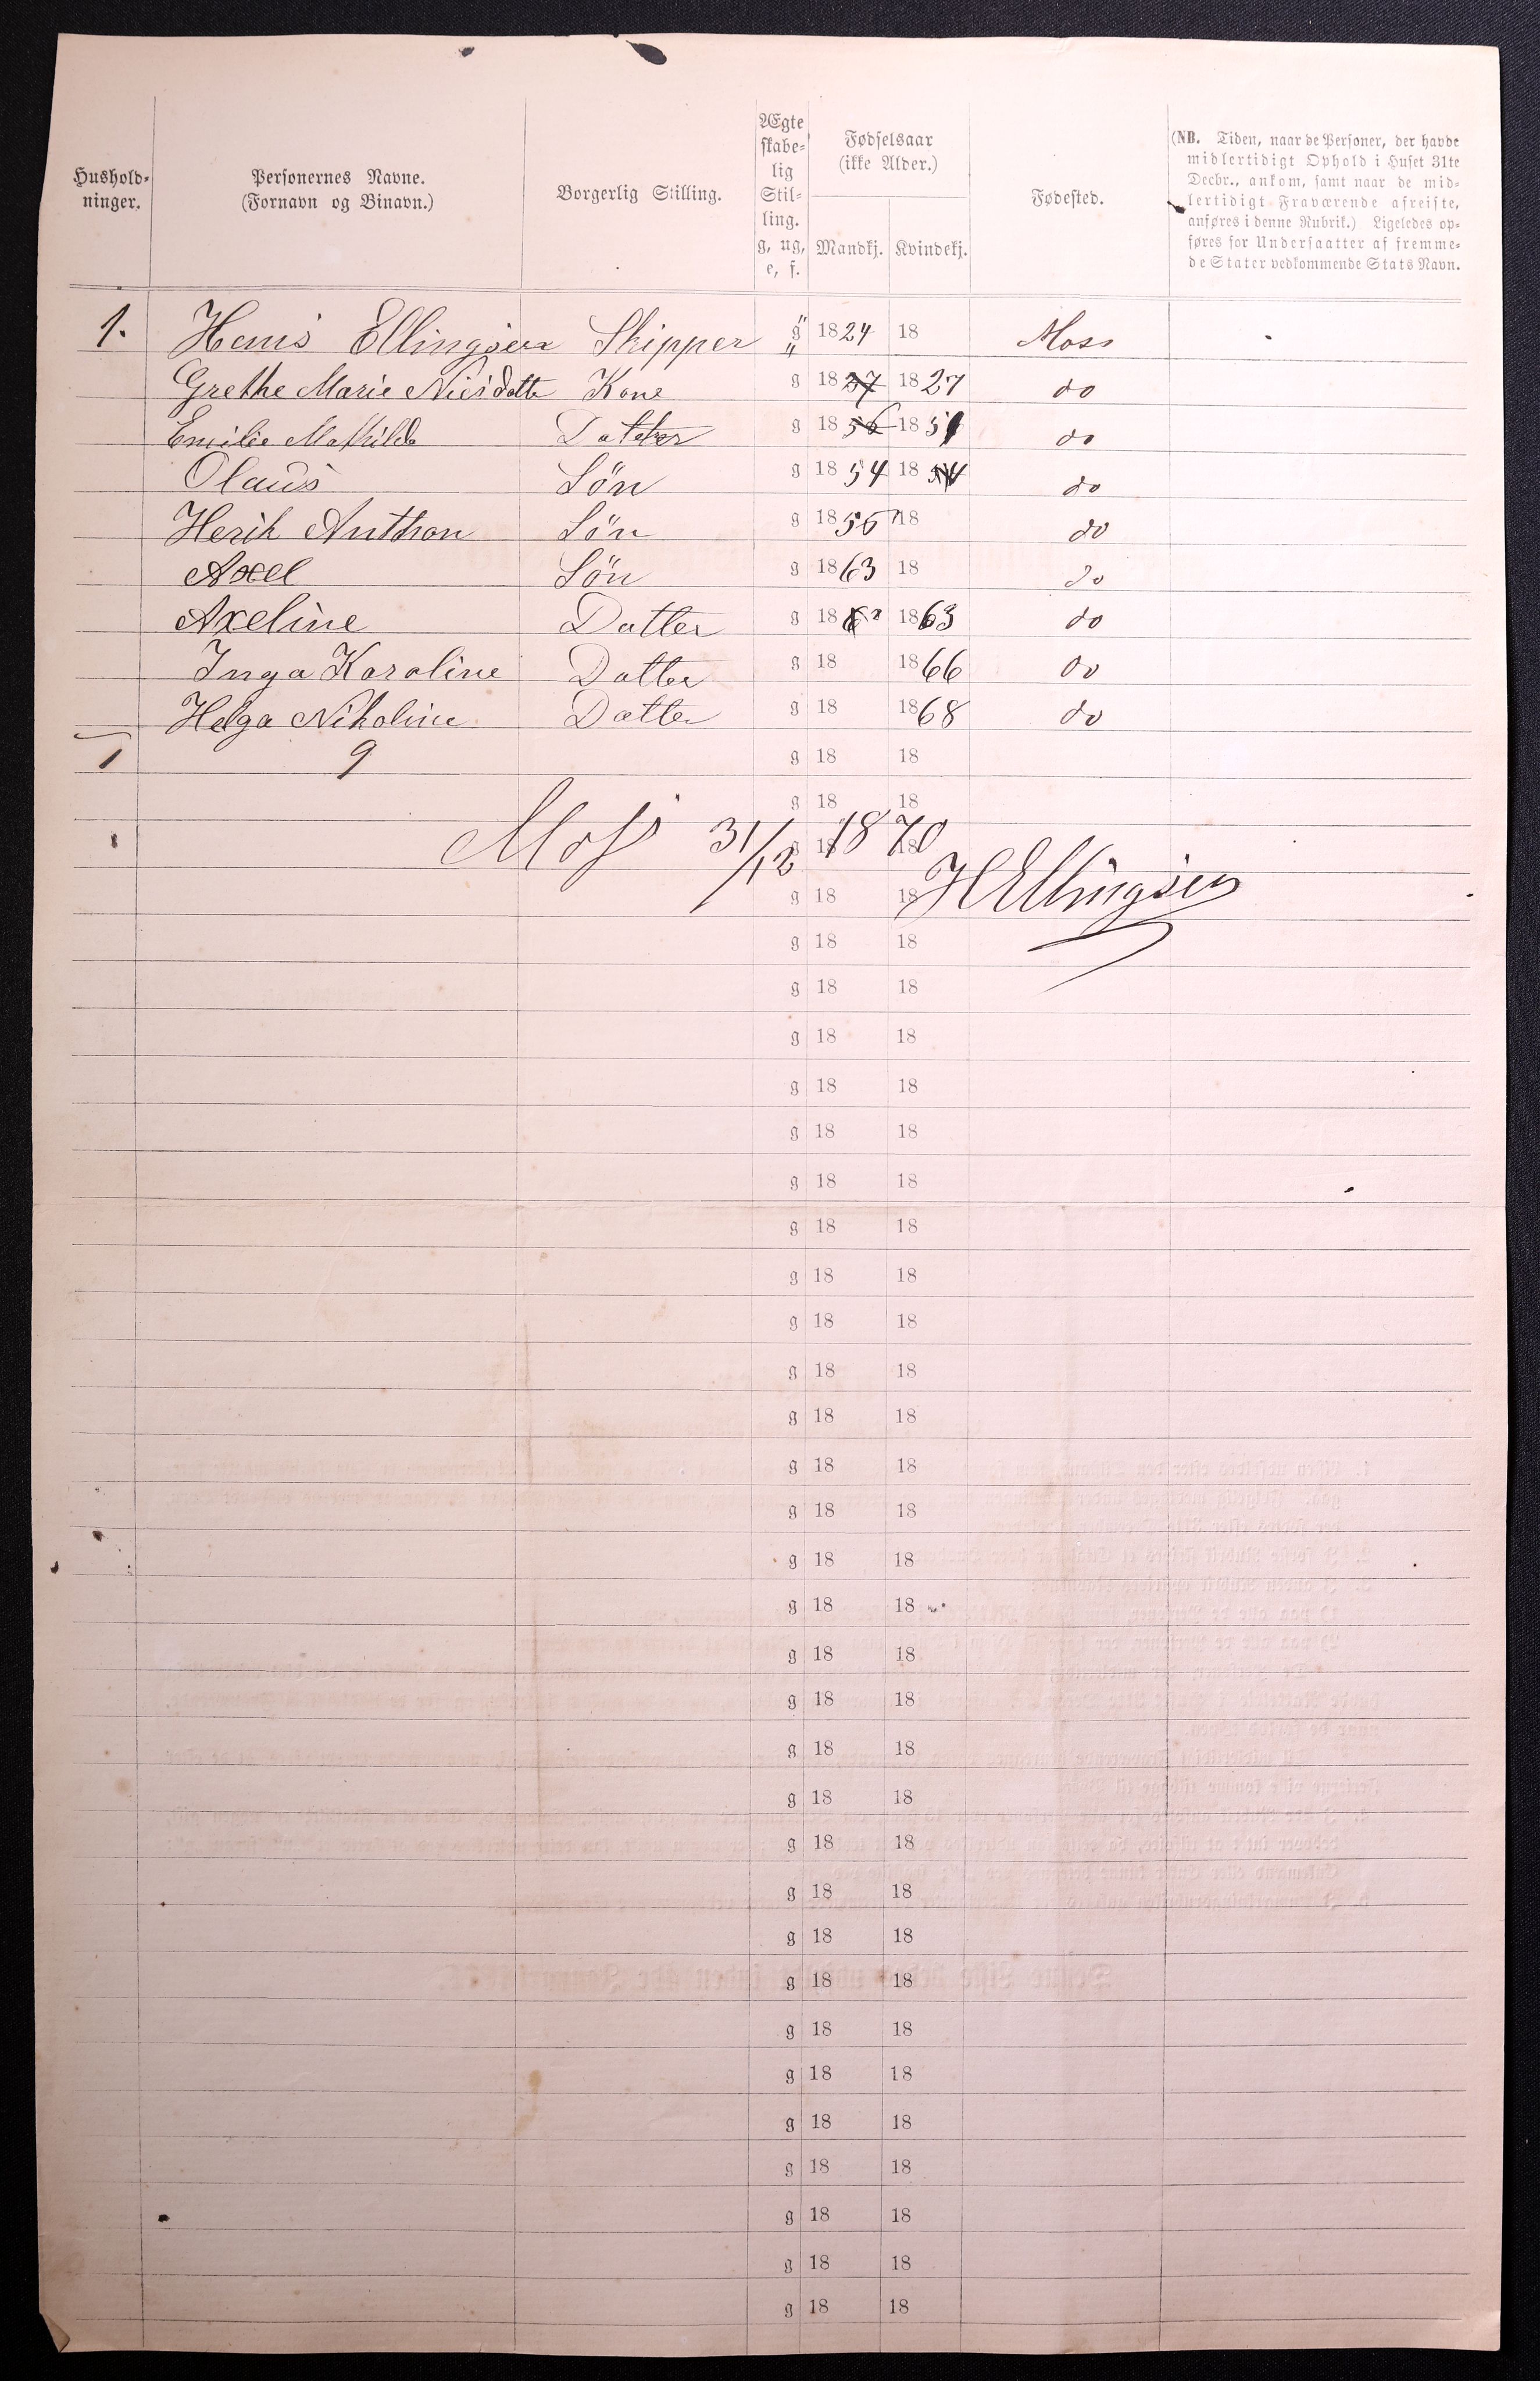 Hushold-
ninger.
Personernes Navne.
(Fornavn og Binavn.)
Borgerlig Stilling.
Ægte
skabe-
lig
Stil-
ling.
g, ug,
e, f.
Fødselsaar
(ikke Alder.)
Mandkj. Kvindekj.
Fødested.
(NB. Tiden, naar de Personer, der havde
midlertidigt Ophold i Huset 31te
Decbr., ankom, samt naar de mid-
lertidigt Fraværende afreiste,
anføres i denne Rubrik.) Ligeledes op-
føres for Undersaatter af fremme-
de Stater vedkommende Stats Navn.
1. Hans Ellingsen Skipper g 1824 18 Moss
Grethe Marie Kone g 1827 1827 do
Emilie Mathilde Datter g 1856 1851 do
Olaus Sön g 1854 1854 do
Herik Anthon Sön g 1856 18 do
Axel Sön g 1863 18 do
Axeline Datter g 18 1863 do
Inga Karoline Datter g 18 1866 do
Helga Nikoline Datter g 18 1868 do
1 9 g 18 18
g 18 18
Moss 31/12 1870 g 18 18
g 18 18 HEllingsen
g 18 18
g 18 18
g 18 18
g 18 18
g 18 18
g 18 18
g 18 18
g 18 18
g 18 18
g 18 18
g 18 18
g 18 18
g 18 18
g 18 18
g 18 18
g 18 18
g 18 18
g 18 18
g 18 18
g 18 18
g 18 18
g 18 18
g 18 18
g 18 18
g 18 18
g 18 18
g 18 18
g 18 18
g 18 18